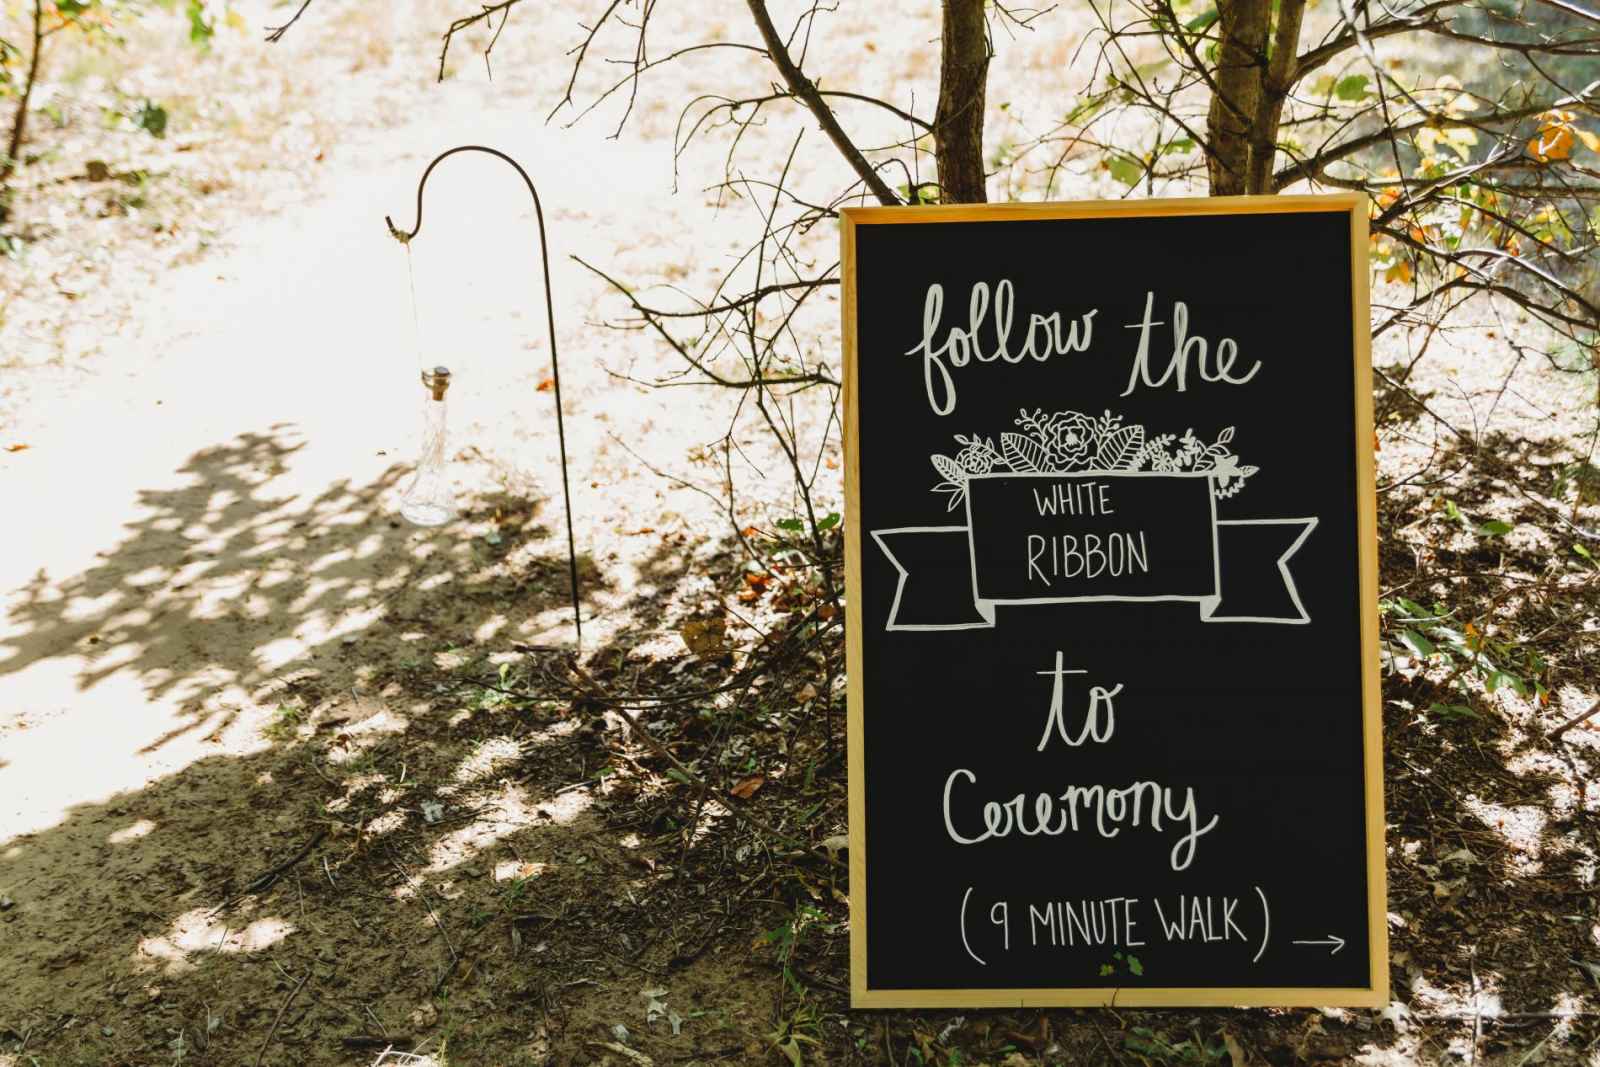 follow the
WHITE
RIBBON
to
Ceremony
(9 MINUTE WALK) →